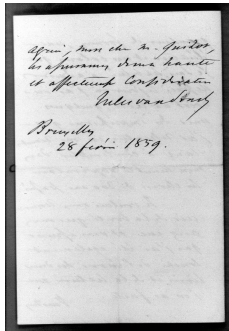 agréer, mon cher M.
les assurances de ma haute
et affectueuse considération
Jules van Praet
Bruxelles
28 février 1859.